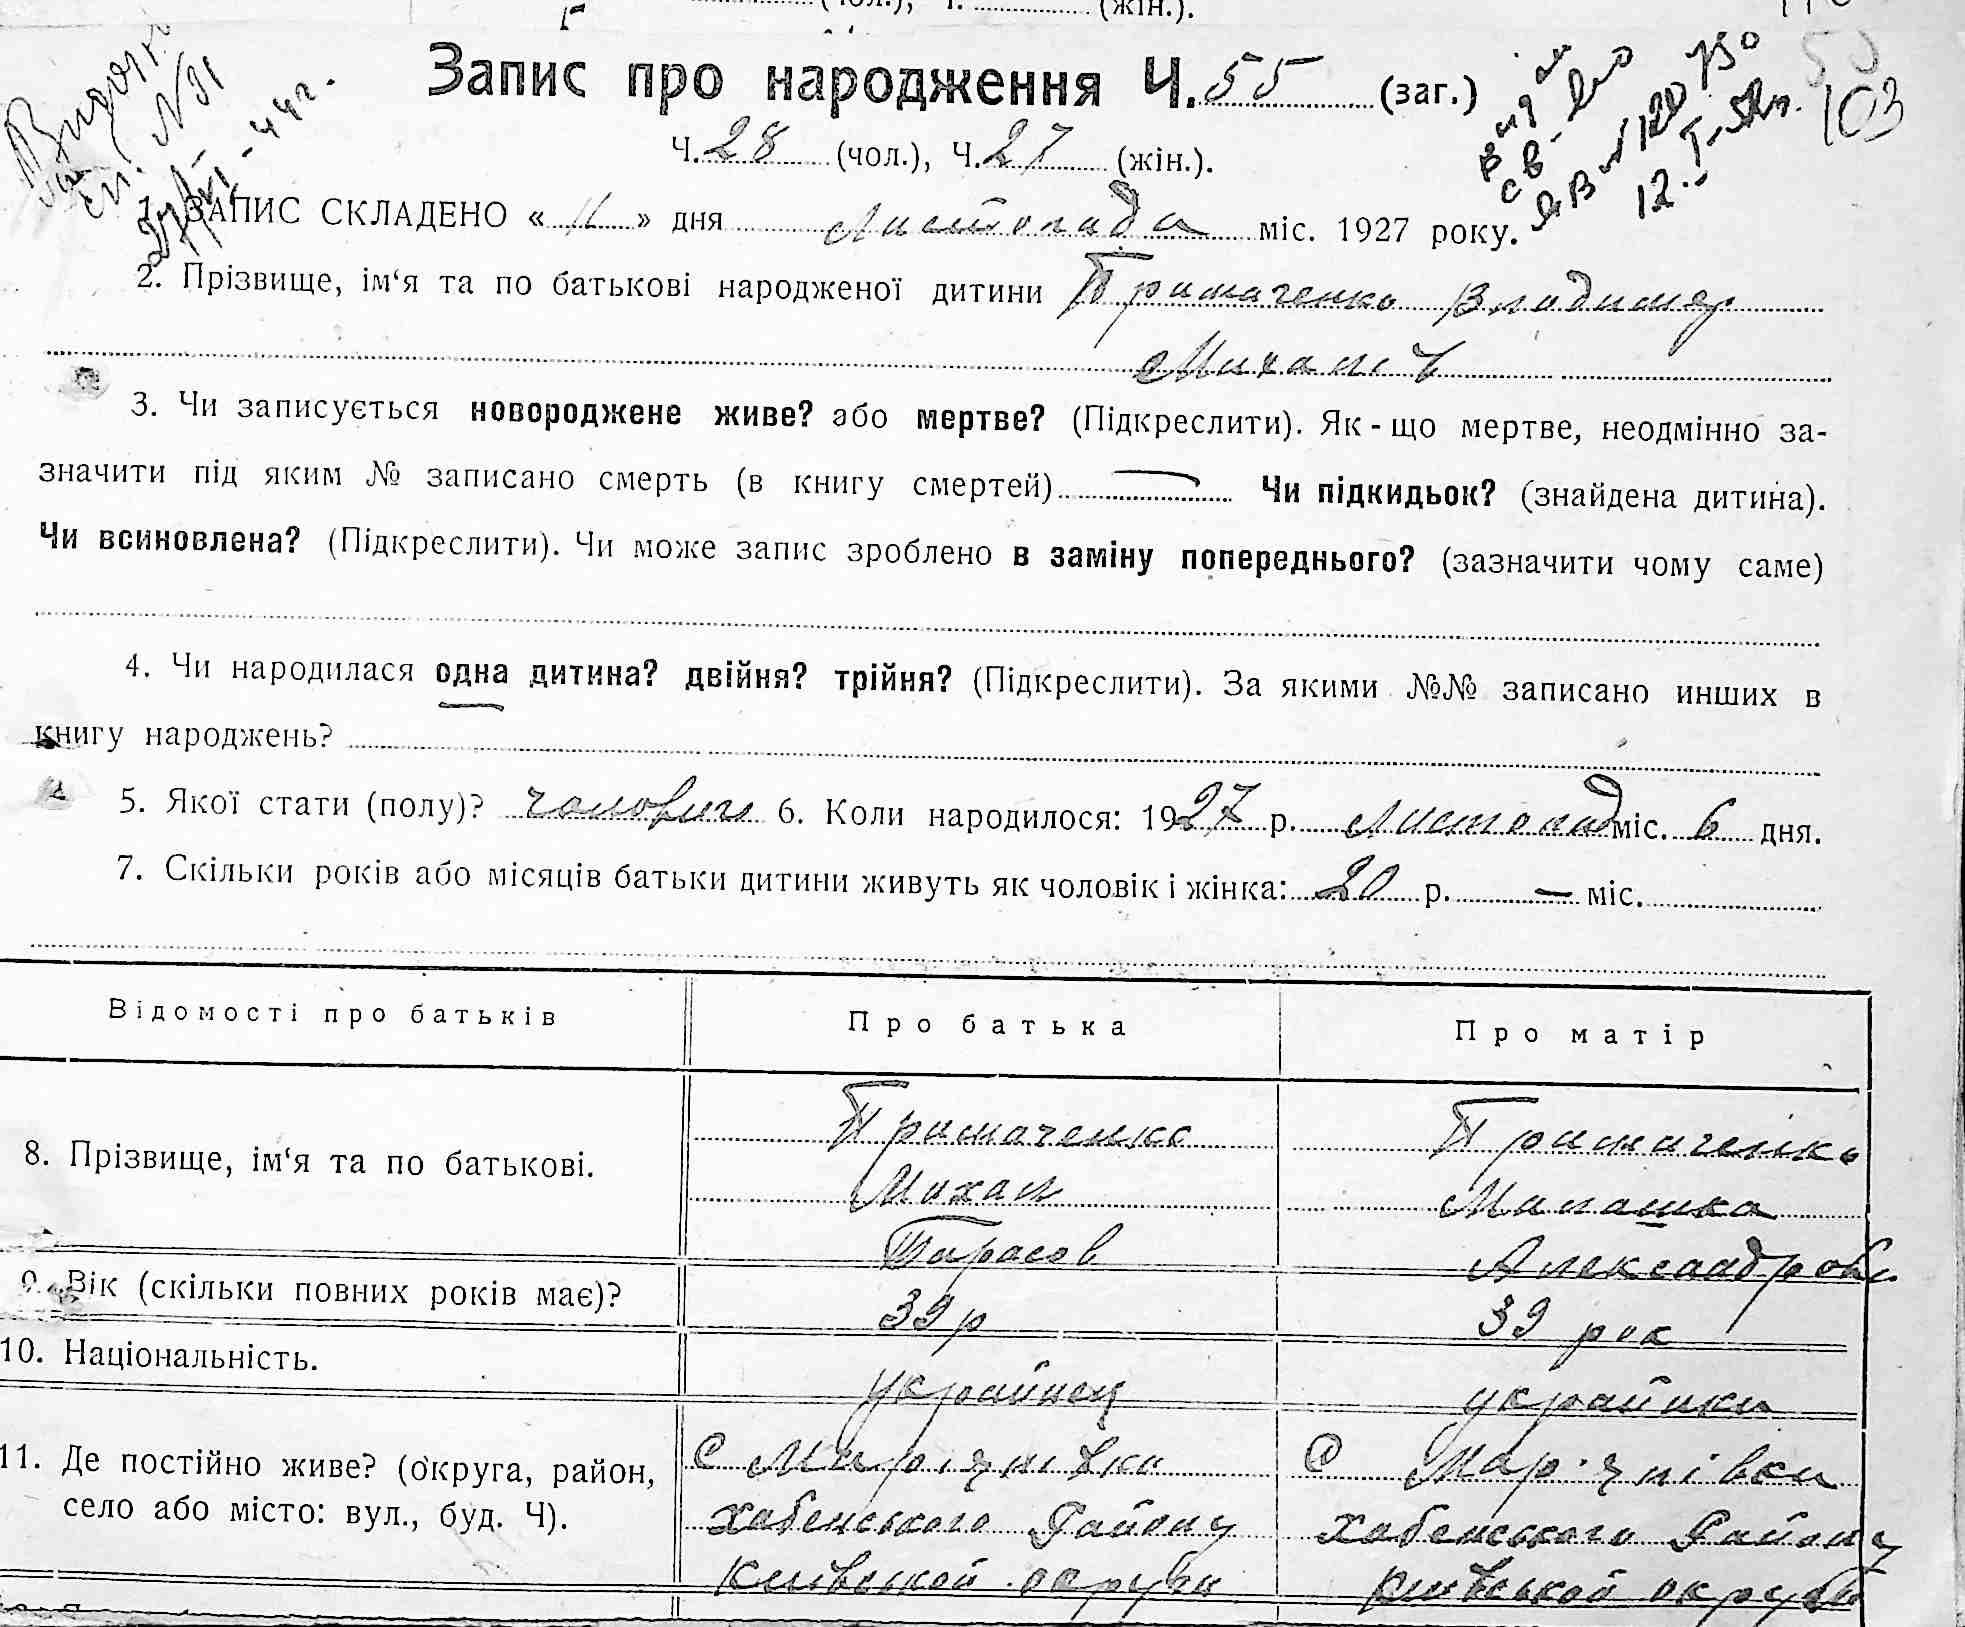 (чол.), Ч. (жін.).
Запис про народження Ч. 55 (заг.)
103
Ч. 28 (чол.), Ч. 27 (жін.).
1. ЗАПИС СКЛАДЕНО « 11 » дня Листопада міс. 1927 року.
2. Прізвище, ім‘я та по батькові народженої дитини Примаченко Владимер
Михалів
3. Чи записується новороджене живе? або мертве? (Підкреслити). Як-що мертве, неодмінно за-
значити під яким № записано смерть (в книгу смертей) Чи підкидьок? (знайдена дитина).
Чи всиновлена? (Підкреслити). Чи може запис зроблено в заміну попереднього? (зазначити чому саме)
4. Чи народилася одна дитина? двійня? трійня? (Підкреслити). За якими №№ записано инших в
книгу народжень?
5. Якої стати (полу)? чоловичі 6. Коли народилося: 1927 р. Листопад міс. 6 дня.
7. Скільки років або місяців батьки дитини живуть як чоловік і жінка: 20 р. — міс.
Відомості про батьків Про батька Про матір
8. Прізвище, ім‘я та по батькові. Примаченко Примаченко
Михал Малашка
Тарасов Александровн
9. Вік (скільки повних років має)? 39 р 39 рок
10. Національність. украйнец украйнка
11. Де постійно живе? (округа, район, С Мар'янівка С Мар'янівка
село або місто: вул., буд. Ч). Хабенського Району Хабенського Району
Київськой округи Київськой округи